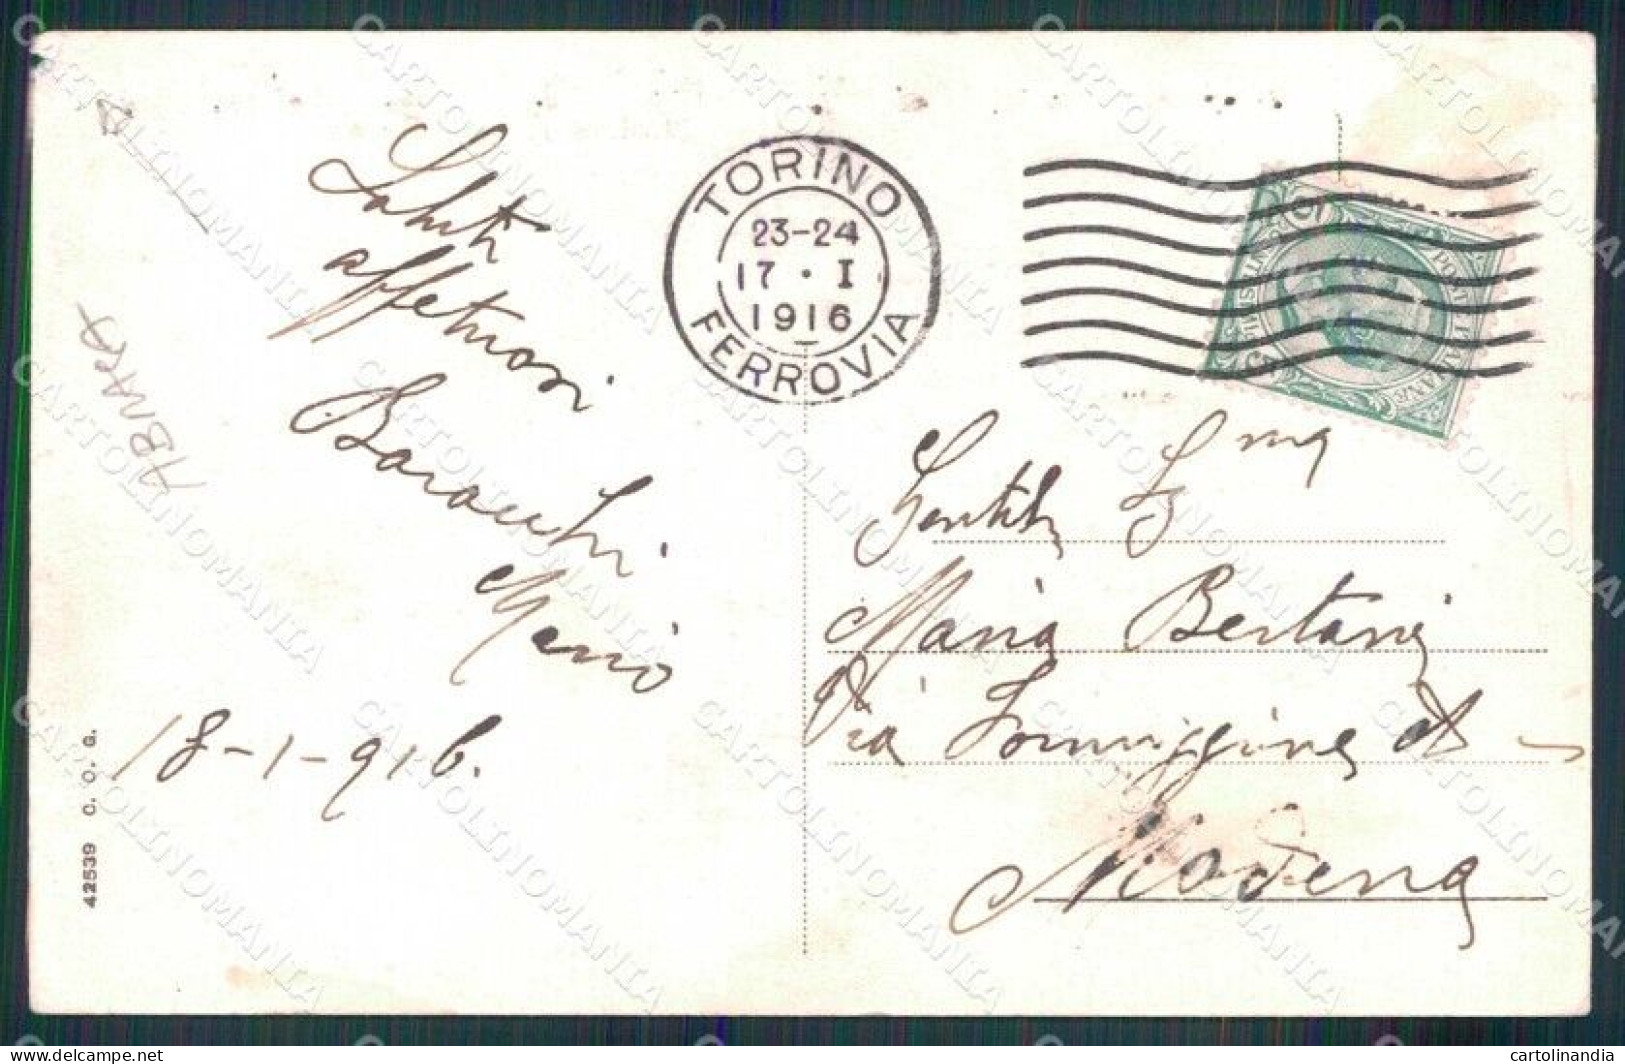 Saluti
affettuosi
Barocchi
Mario
18-1-916.
42539 C. O. G.
TORINO
23-24
17 · I
1916
FERROVIA
POSTE ITALIANE
Gentil Sig.ma
Maria Bertani
Via
Modena
CARTOLINOMANIA
delcampe.net
cartolinandia